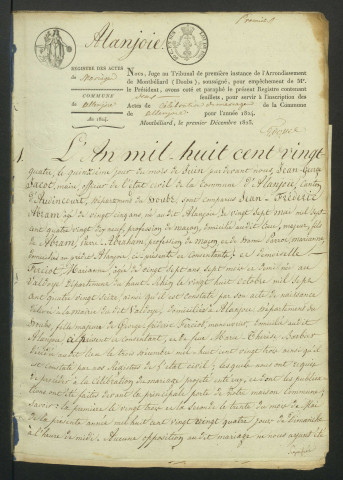 premier
Allanjoie
REGISTRE DES ACTES
de Mariages
COMMUNE
d'Allanjoie
An 1824.
Nous, Juge au Tribunal de première instance de l'Arrondissement
de Montbéliard (Doubs), soussigné, pour empêchement de Mr.
le Président, avons coté et paraphé le présent Registre contenant
feuillets, pour servir à l'inscription des
Actes de Célébration de mariages de la Commune
de Allanjoie pour l'année 1824.
Montbéliard, le premier Décembre 1823.
1. L'An mil-huit cent vingt
quatre, le quinzième jour du mois de Juin par devant nous Jean George
Jacot, maire, officier de l'état civil de la Commune d'Allanjoie, Canton
d'Audincourt, département du Doubs, sont comparus Jean-Frédéric
Abram âgé de vingt cinq ans né audit Allanjoie le vingt sept mai mil sept
cent quatre vingt dix neuf, profession de maçon, domicilié audit lieu, majeur, fils
de Abram, Abraham, profession de maçon et de
domiciliés audit Allanjoie, ci présents et consentants; et Demoiselle
Feriot, Marianne, âgée de vingt sept ans sept mois née
département du haut Rhin le vingt huit octobre mil sept
cent quatre vingt seize, ainsi qu'il est constaté par son acte de naissance
domiciliée à Allanjoie département du
Doubs, fille majeure de George Frédéric Feriot, manouvrier, domicilié audit
Allanjoie, ci présent et consentant, et de feue Marie Catherine
décédée audit lieu le trois novembre mil huit cent vingt trois ainsi qu'il
est constaté par nos registres de l'état civil; lesquels nous ont requis
de procéder à la célébration du mariage projeté entre eux, et dont les publica-
tions ont été faites devant la principale porte de notre maison commune,
savoir: la première le vingt trois et la seconde le trente du mois de Mai
de la présente année mil huit cent vingt quatre jour de dimanche
à l'heure de midi. Aucune opposition au dit mariage ne nous ayant été